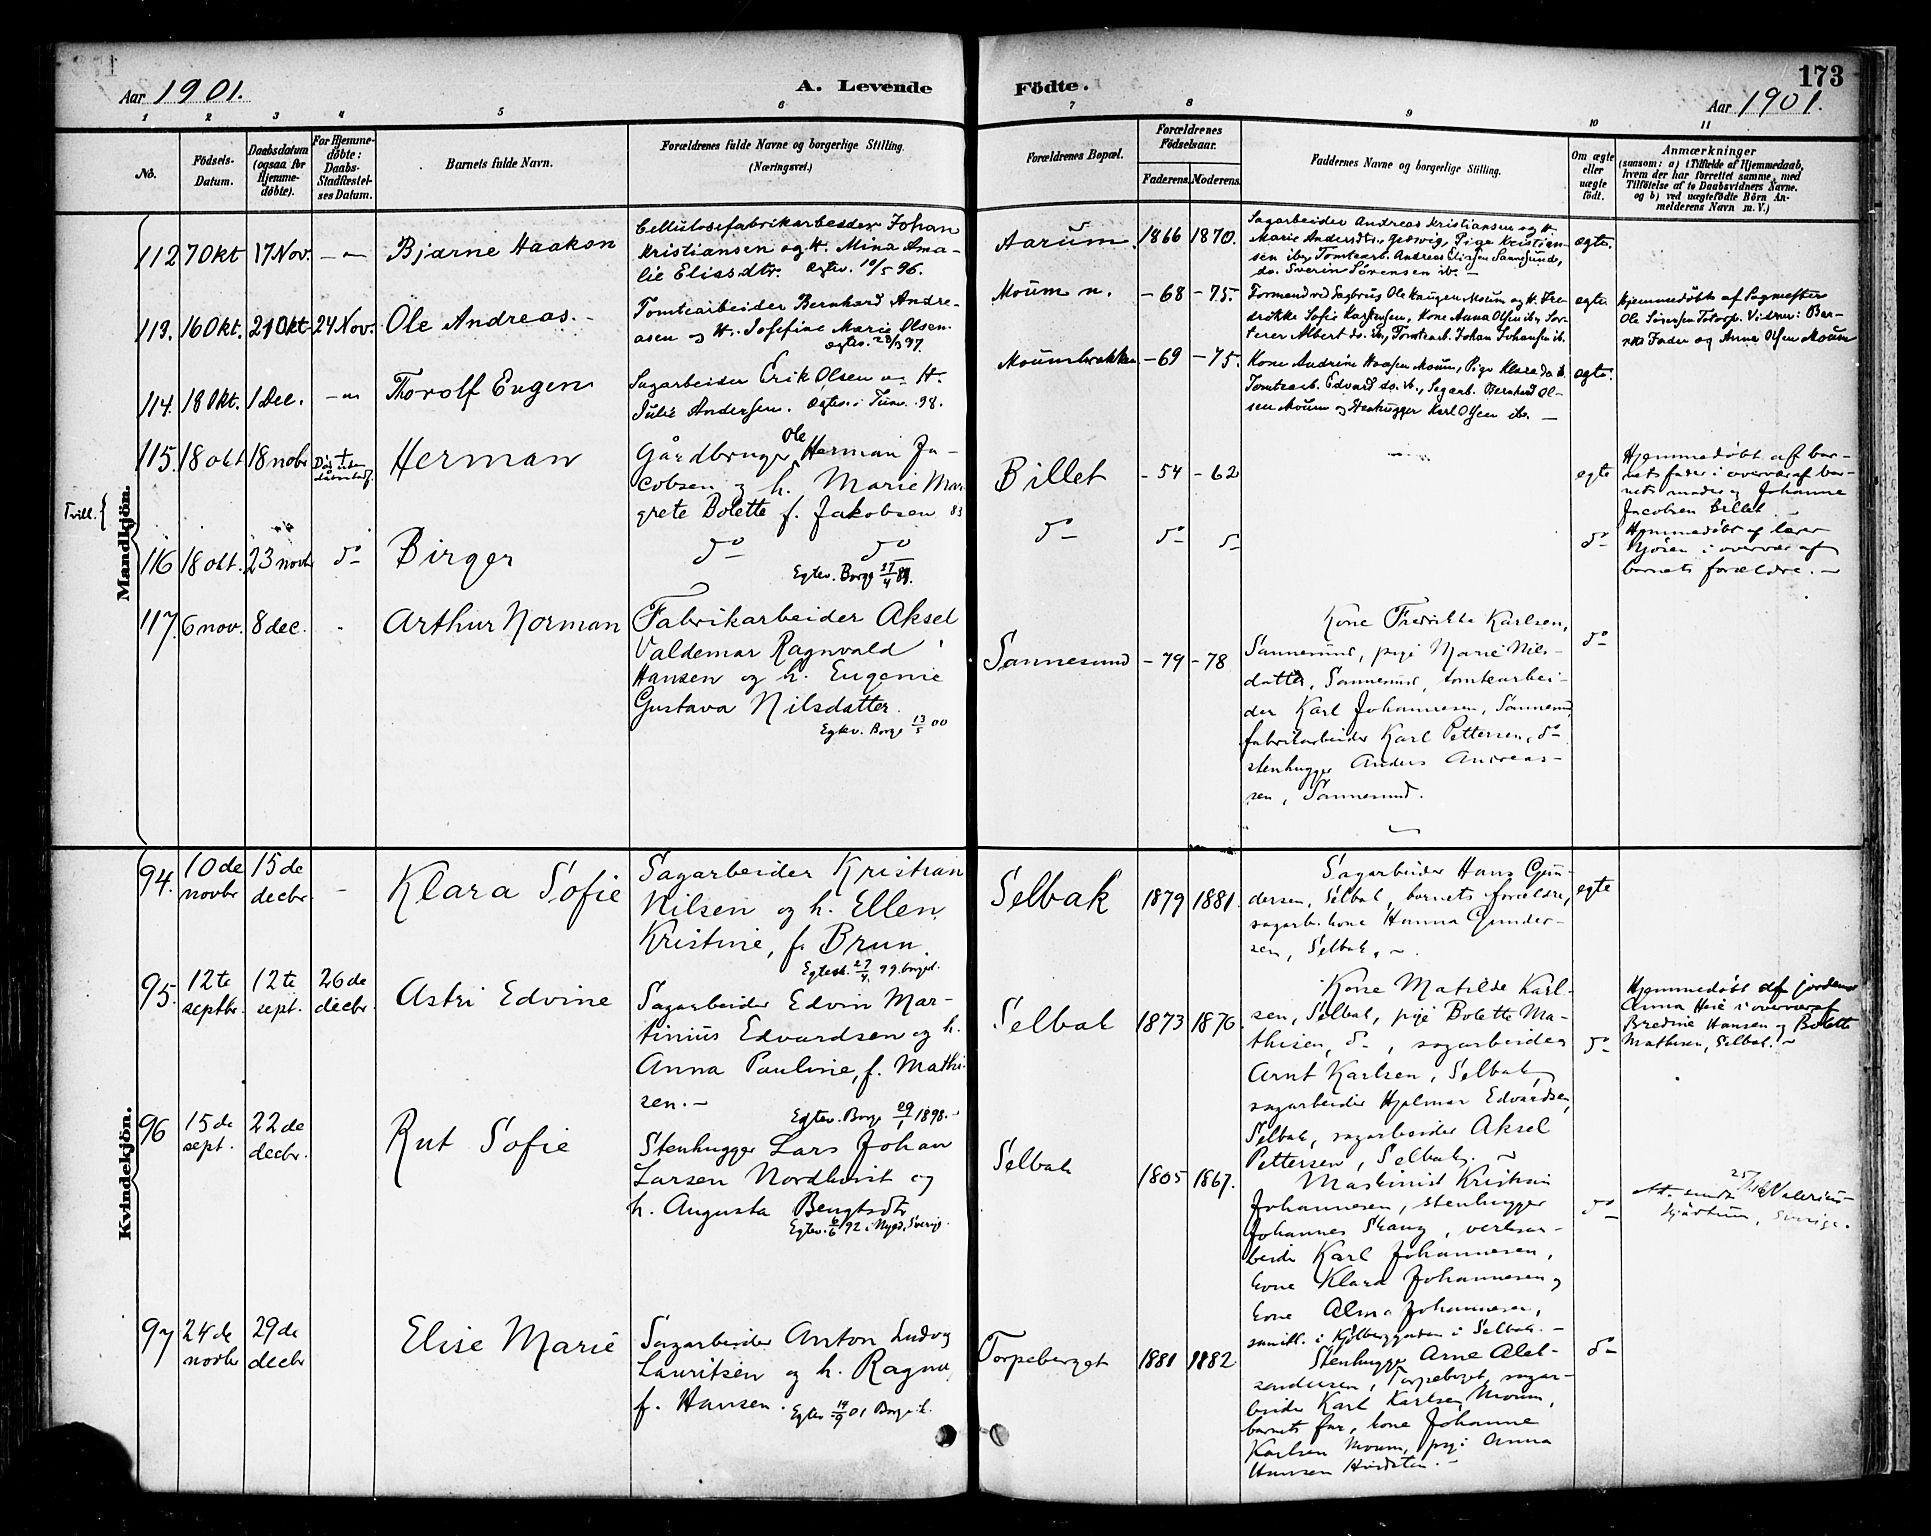 Aar 1901.
A. Levende
Födte.
173
Aar 1901.
1 2 3 4 5 6 7 8 9 10 11
No.
Födsels-
Datum.
Daabsdatum
(ogsaa for
Hjemme-
döbte).
For Hjemme-
döbte:
Daabs-
Stadfæstel-
ses Datum.
Barnets fulde Navn.
Forældrenes fulde Navne og borgerlige Stilling.
(Næringsvei.)
Forældrenes Bopæl.
Forældrenes
Födselsaar.
Faderens. Moderens.
Faddernes Navne og borgerlige Stilling.
Om ægte
eller
uægte
födt.
Anmærkninger
(saasom: a) i Tilfælde af Hjemmedaab,
hvem der har forrettet samme, med
Tilföielse af to Daabsvidners Navne.
og b) ved uægtefödte Börn An-
melderens Navn m. V.)
Mandkjön.
112 7 Okt 17 Nov. Bjarne Haakon
Cellulosefabrikarbeider Johan
Kristiansen og H. Mina Ama-
lie Eliasdtr. Egtev. 10/5 96.
Aarum 1866 1870.
Sagarbeider Andreas Kristiansen og H.
Marie Andersdtr., Pige Kristian-
sen ibd, Tomtearb. Andreas Sannesund,
do. Sverin Sörensen ib.
egte.
113. 16 Okt. 21 Okt 24 Nov. Ole Andreas.
Tomtearbeider Bernhard Andre-
asen og H. Josefine Marie Olsen.
Egtev. 28/3 97.
Moum n. - 68 - 75.
Formand ved Sagbrug Ole Haugen Moum og H. Fre-
drikke Sofie Karlsen, Kone Anna Olsen ib, Sor-
terer Albert do. ib., Tomtearb. Johan Johansen ib.
egte
Hjemmedöbt af Sagmester
Ole Sörensen Vidner: Bar-
nets Fader og Anna Olsen Moum
114. 18 Okt. 1 Dec. Thorolf Eugen
Sagarbeider Erik Olsen og H.
Julie Andersen. Egtev. i Tune 98.
Moumbrækken - 69 - 75.
Kone Andrine Moum, Pige Klara do ib.
Tomtearb. Edvard do. ib., Sagarb. Bernhard Ol-
sen Moum og Stenhugger Karl Olsen ib.
egte.
Tvill. {
115. 18 okt 18 nobr
Herman
Gårdbruger Ole Herman Ja-
cobsen og h. Marie Mar-
grete Bolette f. Jakobsen
Billet - 54 - 62
egte
Hjemmedöbt af bar-
nets fader i overvær af bar-
nets moder og Johanne
Jacobsen Billet.
116 18 okt. 23 novbr do Birger
do do
Egtev. Borge 27/4
do do do
do
Hjemmedöbt af
i overvær af
barnets forældre.
117. 6 nov. 8 dec. Arthur Norman
Fabrikarbeider Aksel
Valdemar Ragnvald
Hansen og h. Eugenie
Gustava Nilsdatter.
Egtev. Borge 13/5 00
Sannesund - 79 - 78
Kone Fredrikke Karlsen,
Sannesund, pige Marie Nils-
datter, Sannesund, tomtearbei-
der Karl Johannesen, Sannesund,
fabrikarbeider Karl Pettersen, do
stenhugger Anders Andreas-
sen, Sannesund.
do
Kvindekjön.
94. 10 de
novbr
15 de
decbr
Klara Sofie
Sagarbeider Kristian
Nilsen og h. Ellen
Kristine, f. Brun
Egtev. 27/4 99
Selbak 1879 1881.
Sagarbeider Hans Gun-
dersen, Selbak, barnets forældre,
sagarb. kone Hanna Gunder-
sen, Selbak.
egte
95. 12te
septbr.
12te
sept.
26 de
decbr.
Astri Edvine
Sagarbeider Edvin Mar-
tinius Edvardsen og h.
Anna Pauline, f. Mathi-
sen.
Egtev. Borge 29/1 1898.
Selbak 1873 1876.
Kone Matilde Karl-
sen, Selbak, pige Bolette Ma-
thisen, do, sagarbeider
Arnt Karlsen, Selbak,
sagarbeider Hjelmar Edvardsen,
Selbak, sagarbeider Aksel
Pettersen, Selbak.
do
Hjemmedöbt af jordemor
Anna Heie i overvær af
Bredine Hansen og Bolette
Mathisen, Selbak.
96 15 de
sept.
22 de
decbr.
Rut Sofie
Stenhugger Lars Johan
Larsen Nordkvist og
h. Augusta Bengtsdtr
Egtev. 6/6 92 i Sverig.
Selbak 1865 1867.
Maskinist Kristian
Johannesen, stenhugger
Johannes Skaug, verksar-
beider Karl Johannesen,
kone Klara Johannesen og
kone Alma Johannesen,
samtl. i Kjölberggaden i Selbak.
do
Att. sendt
Sverige.
97 24 de
novbr
29 de
decbr
Elise Marie
Sagarbeider Anton Ludvig
Lauritsen og h. Ragna,
f. Hansen. Egtev. 14/9 01 Borge k.
Torpeberget 1881 1882
Stenhugger Arne Alek-
sandersen, Torpeberget, sagar-
beider Karl Karlsen, Moum,
barnets far, kone Johanne
Karlsen Moum, pige Anna
Hansen
do